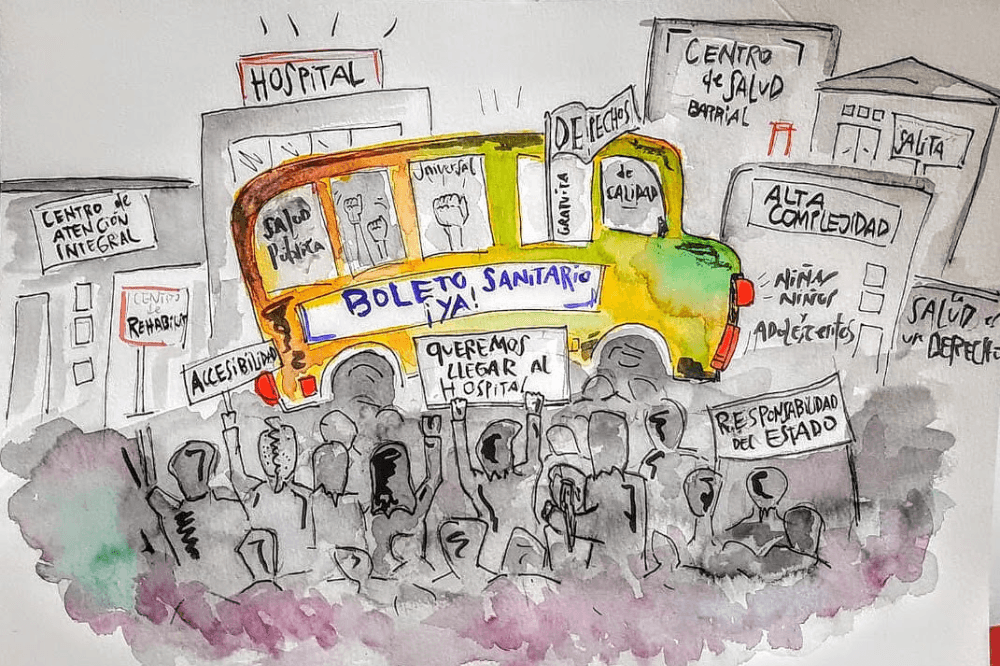 HOSPITAL
CENTRO
de SALUD
BARRIAL
SALITA
CENTRO de
ATENCIÓN
INTEGRAL
CENTRO
de
REHABILIT
DERECHOS
Salud
Pública
Universal
GRATUITA
de
CALIDAD
ALTA
COMPLEJIDAD
NIÑAS
NIÑOS
Y
AdoLEScentes
LA
SALUD es
un DERECHO
BOLETO SANITARIO
¡YA!
ACCESIBILIDAD
QUEREMOS
LLEGAR AL
HOSPITAL
RESPONSABILIDAD
DEL ESTADO